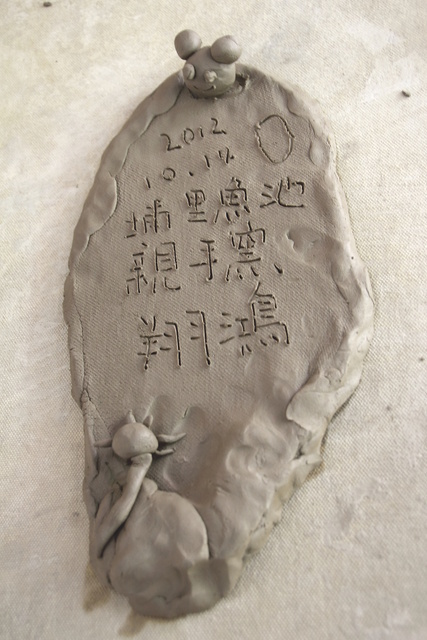 2012
10.14
埔里魚池
親手窯、
翔鴻